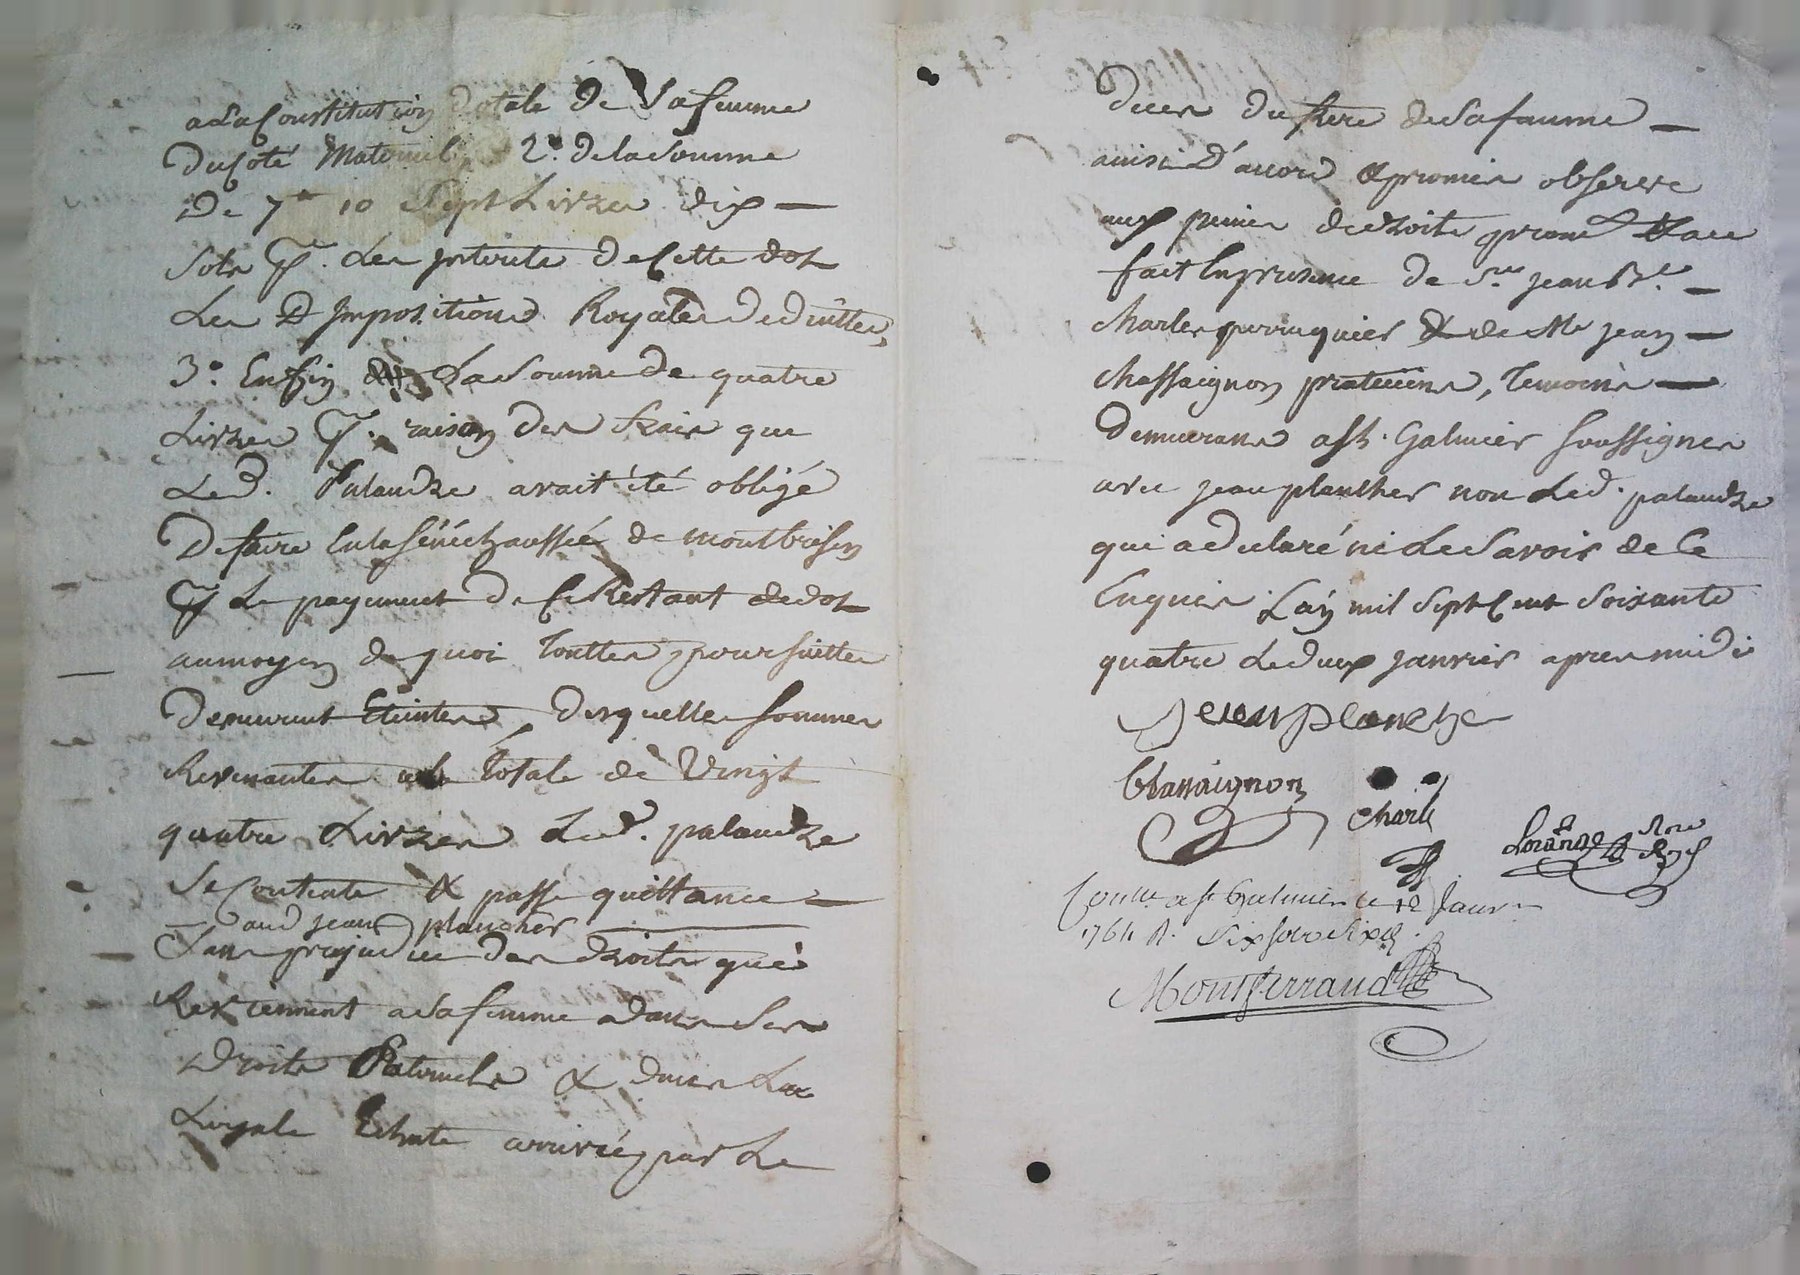 a la Constitution dotale de Sa femme
du Coté Maternel, 2.° de la Somme
de 7# 10 Sept Livres dix —
Sols pr. les interets de Cette dot
les d Impositions Royales deduittes,
3.° Enfin de la Somme de quatre
Livres pr. raison des fraix que
Led. Palandre avait été obligé
de faire En la Sénéchaussée de montbrison
pr le payement de Ce Restant de dot
au moyen de quoi touttes poursuittes
demeurent Eteintes, desquelles Sommes
Revenantes au total de Vingt
quatre Livres Led. palandre
Se Contente & passe quittance —
aud jean plancher
Sans prejudice des droits qui
Reviennent a Sa femme dans Ses
droits Paternels & dans la
Legale Echute arrivée par le
deces du frere de Sa famme —
ainsi d'accord & promis observer
aux peines de droits &
fait En presence de Sr. jean Bte. —
Charles perruquier & de Me jean —
Chassaignon praticiens, temoins —
demeurans a St. Galmier Soussignes
avec jean plancher non Led. palandre
qui a declaré ne le Savoir de Ce
Enquis L'an mil Sept Cent Soixante
quatre le deux janvier apres midi
jean planche
Chassaignon
Charle
nore Royl
Conlle a St Galmier le 12 Janv.
1764 R. Six sols Six d.
Montferrand